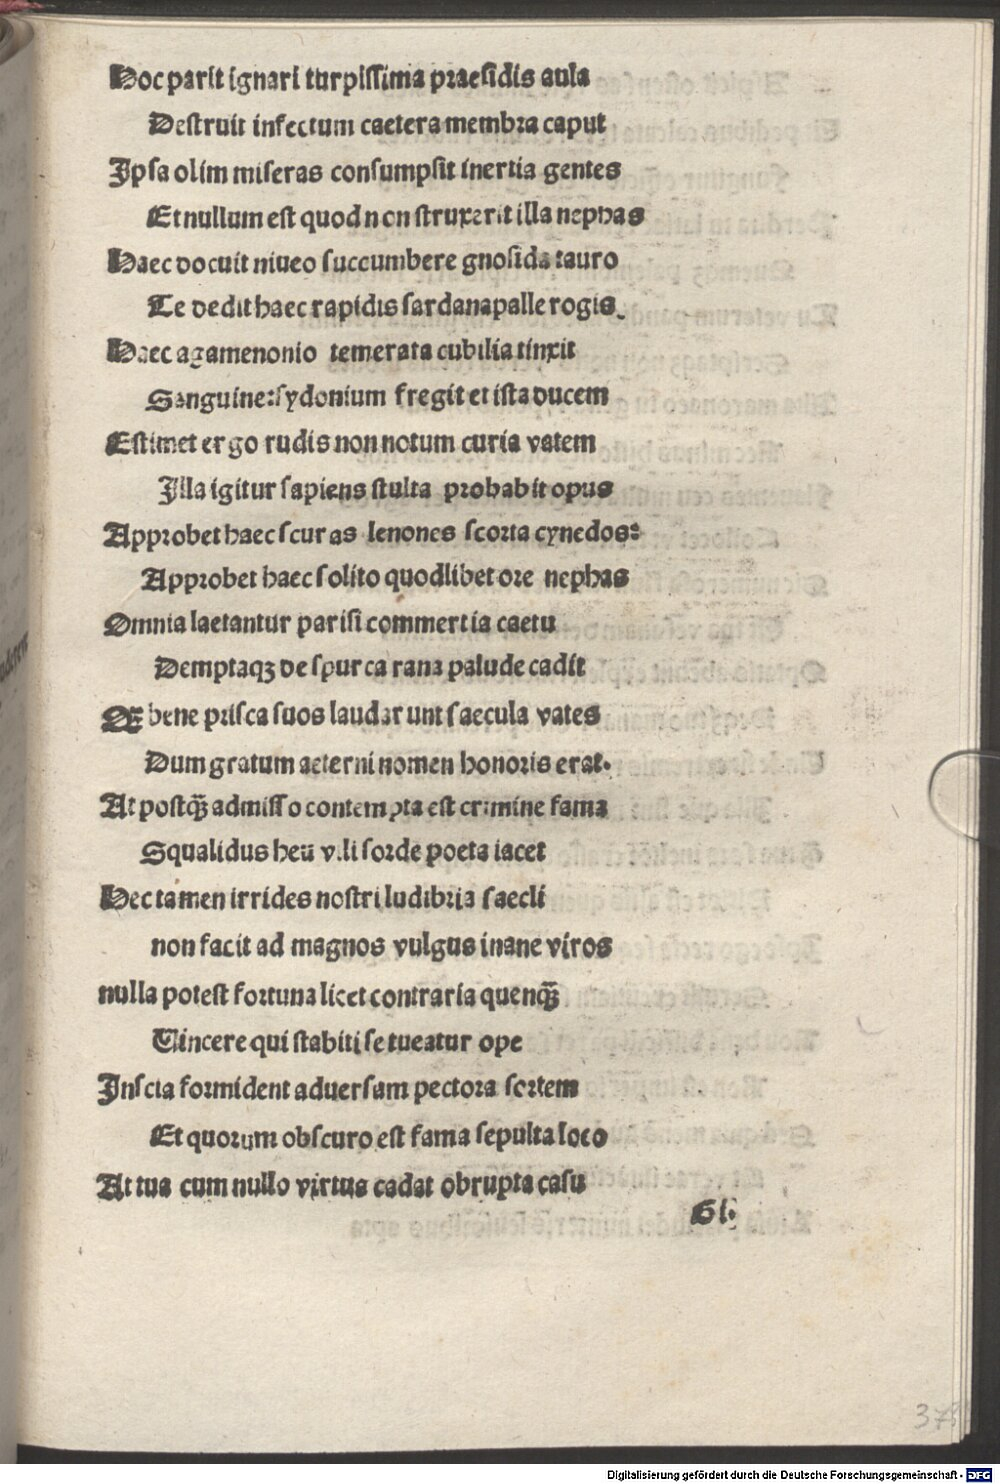 Hoc parit ignari turpissima praesidis aula
Destruit infectum caetera membra caput
Ipsa olim miseras consumpsit inertia gentes
Et nullum est quod non struxerit illa nephas
Haec docuit niueo succumbere gnosida tauro
Te dedit haec rapidis sardanapalle rogis.
Haec agamenonio temerata cubilia tinxit
Sanguine: sydonium fregit et ista ducem
Estimet ergo rudis non notum curia vatem
Illa igitur sapiens stulta probabit opus
Approbet haec scuras lenones scorta cynedos:
Approbet haec solito quodlibet ore nephas
Omnia laetantur parisi commertia caetu
Demptaqꝫ de spurca rana palude cadit
O bene prisca suos laudarunt saecula vates
Dum gratum aeterni nomen honoris erat.
At postqꝫ̃ admisso contempta est crimine fama
Squalidus heu vili sorde poeta iacet
Hec tamen irrides nostri ludibria saecli
non facit ad magnos vulgus inane viros
nulla potest fortuna licet contraria quenqꝫ̃
Vincere qui stabiti se tueatur ope
Inscia formident aduersam pectora sortem
Et quorum obscuro est fama sepulta loco
At tua cum nullo virtus cadat obrupta casu
Gl.
378
Digitalisierung gefördert durch die Deutsche Forschungsgemeinschaft - DFG